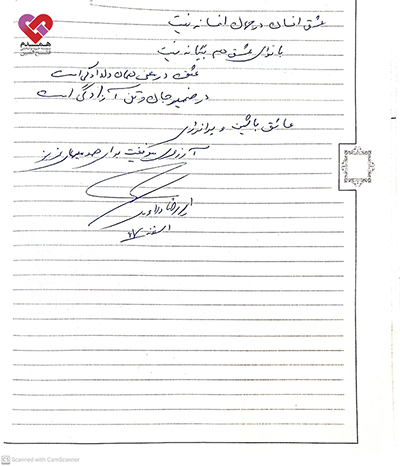 عشق انسان در جهان افسانه نیست
با نوای عشق دم بیگانه نیست
عشق در عین دلدادگی است
در ضمیر جان و تن آزادگی است
عاشق باشین و پر انرژی
آرزوی موفقیت برای همدمیهای عزیز
اسفند
همدم
CS Scanned with CamScanner